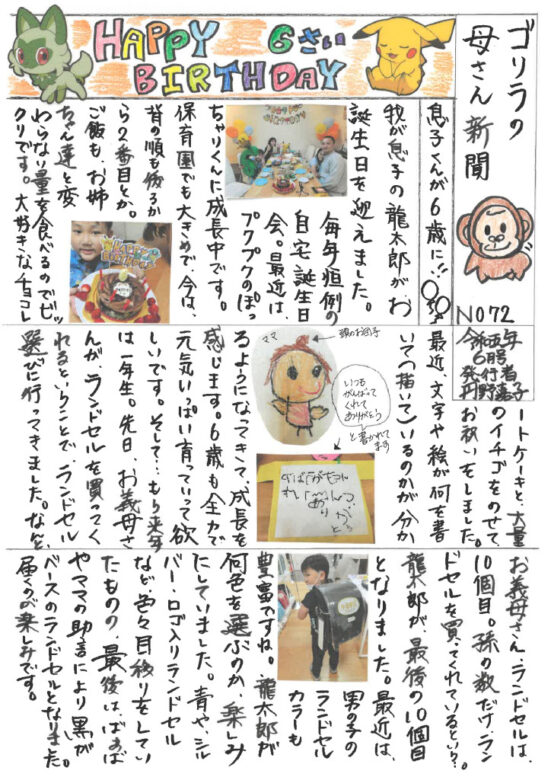 HAPPY 6さい
BIRTHDAY
ゴリラの
母さん新聞
NO72
令和五年
6月号
発行者
息子くんが6歳に!!
我が息子の龍太郎が、お
誕生日を迎えました。
毎年恒例の
自宅誕生日
会。最近は、
プクプクのぽっ
ちゃりくんに成長中です。
保育園でも大きめで、今は、
背の順も後ろか
ら2番目とか。
ご飯も、お姉
ちゃん達と変
わらない量を食べるのでビッ
クリです。大好きなチョコレ
ートケーキと、大量
のイチゴをのせて、
お祝いをしました。
最近、文字や絵が何を書
いて(描いて)いるのかが分か
るようになってきて、成長を
感じます。6歳も全力で
元気いっぱい育っていって欲
しいです。そして…もう来年
は一年生。先日、お義母さ
んが、ランドセルを買ってく
れるということで、ランドセル
選びに行ってきました。なんと、
ママ
頭のお団子
いつも
がんばって
くれて
ありがとう
と書かれて
ます
お義母さん、ランドセルは、
10個目。孫の数だけ、ラン
ドセルを買ってくれているという?。
龍太郎が、最後の10個目
となりました。最近は、
男の子の
ランドセル
カラーも
豊富ですね。龍太郎が
何色を選ぶのか、楽しみ
にしていました。青や、シル
バー、ロゴ入りランドセル
など色々目移りをしてい
たものの、最後は、ばぁば
やママの助言により黒が
ベースのランドセルとなりました。
届くのが楽しみです。